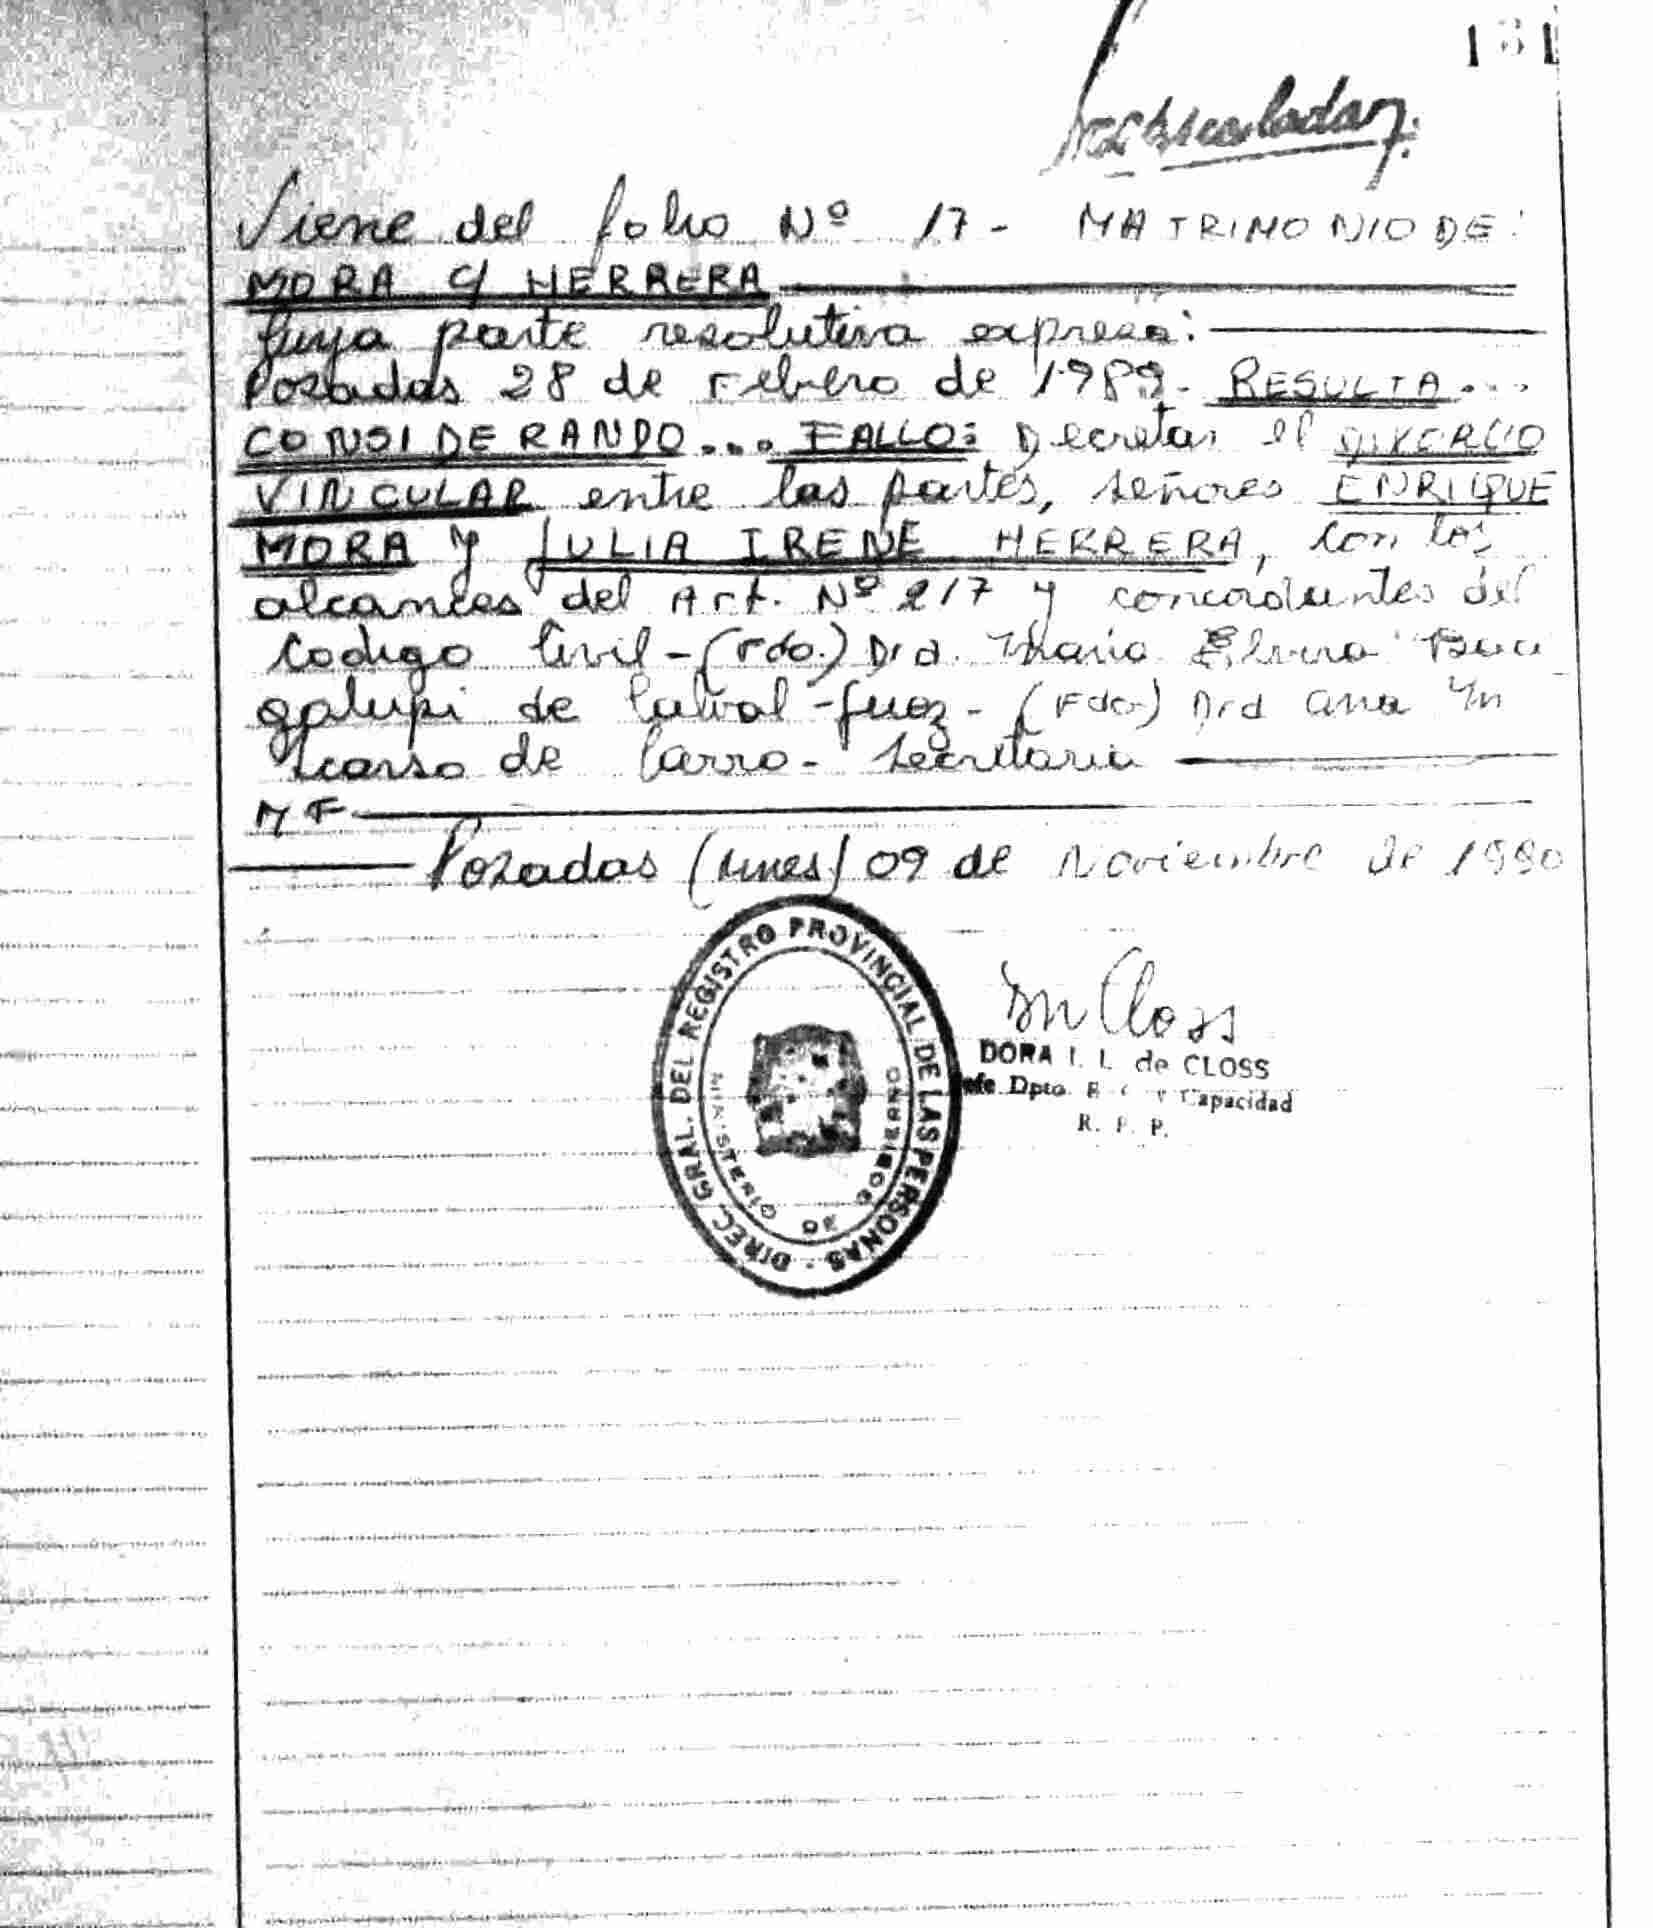 131
Viene del folio Nº 17 - MATRIMONIO DE:
MORA C/ HERRERA
Cuya parte resolutiva expresa:
Posadas 28 de Febrero de 1989. RESULTA...
CONSIDERANDO... FALLO: Decretar el DIVORCIO
VINCULAR entre las partes, señores ENRIQUE
MORA y JULIA IRENE HERRERA, con los
alcances del Art. Nº 217 y concordantes del
Codigo Civil - (Fdo.) Dra. Maria Elvira Baci
galupi de - Juez - (Fdo) Dra Ana
de - Secretaria
MF
Posadas (Mnes) 09 de Noviembre de 1990
DIREC. GRAL. DEL REGISTRO PROVINCIAL DE LAS PERSONAS -
MINISTERIO DE GOBIERNO
M Closs
DORA I. L. de CLOSS
Jefe Dpto. y Capacidad
R. P. P.